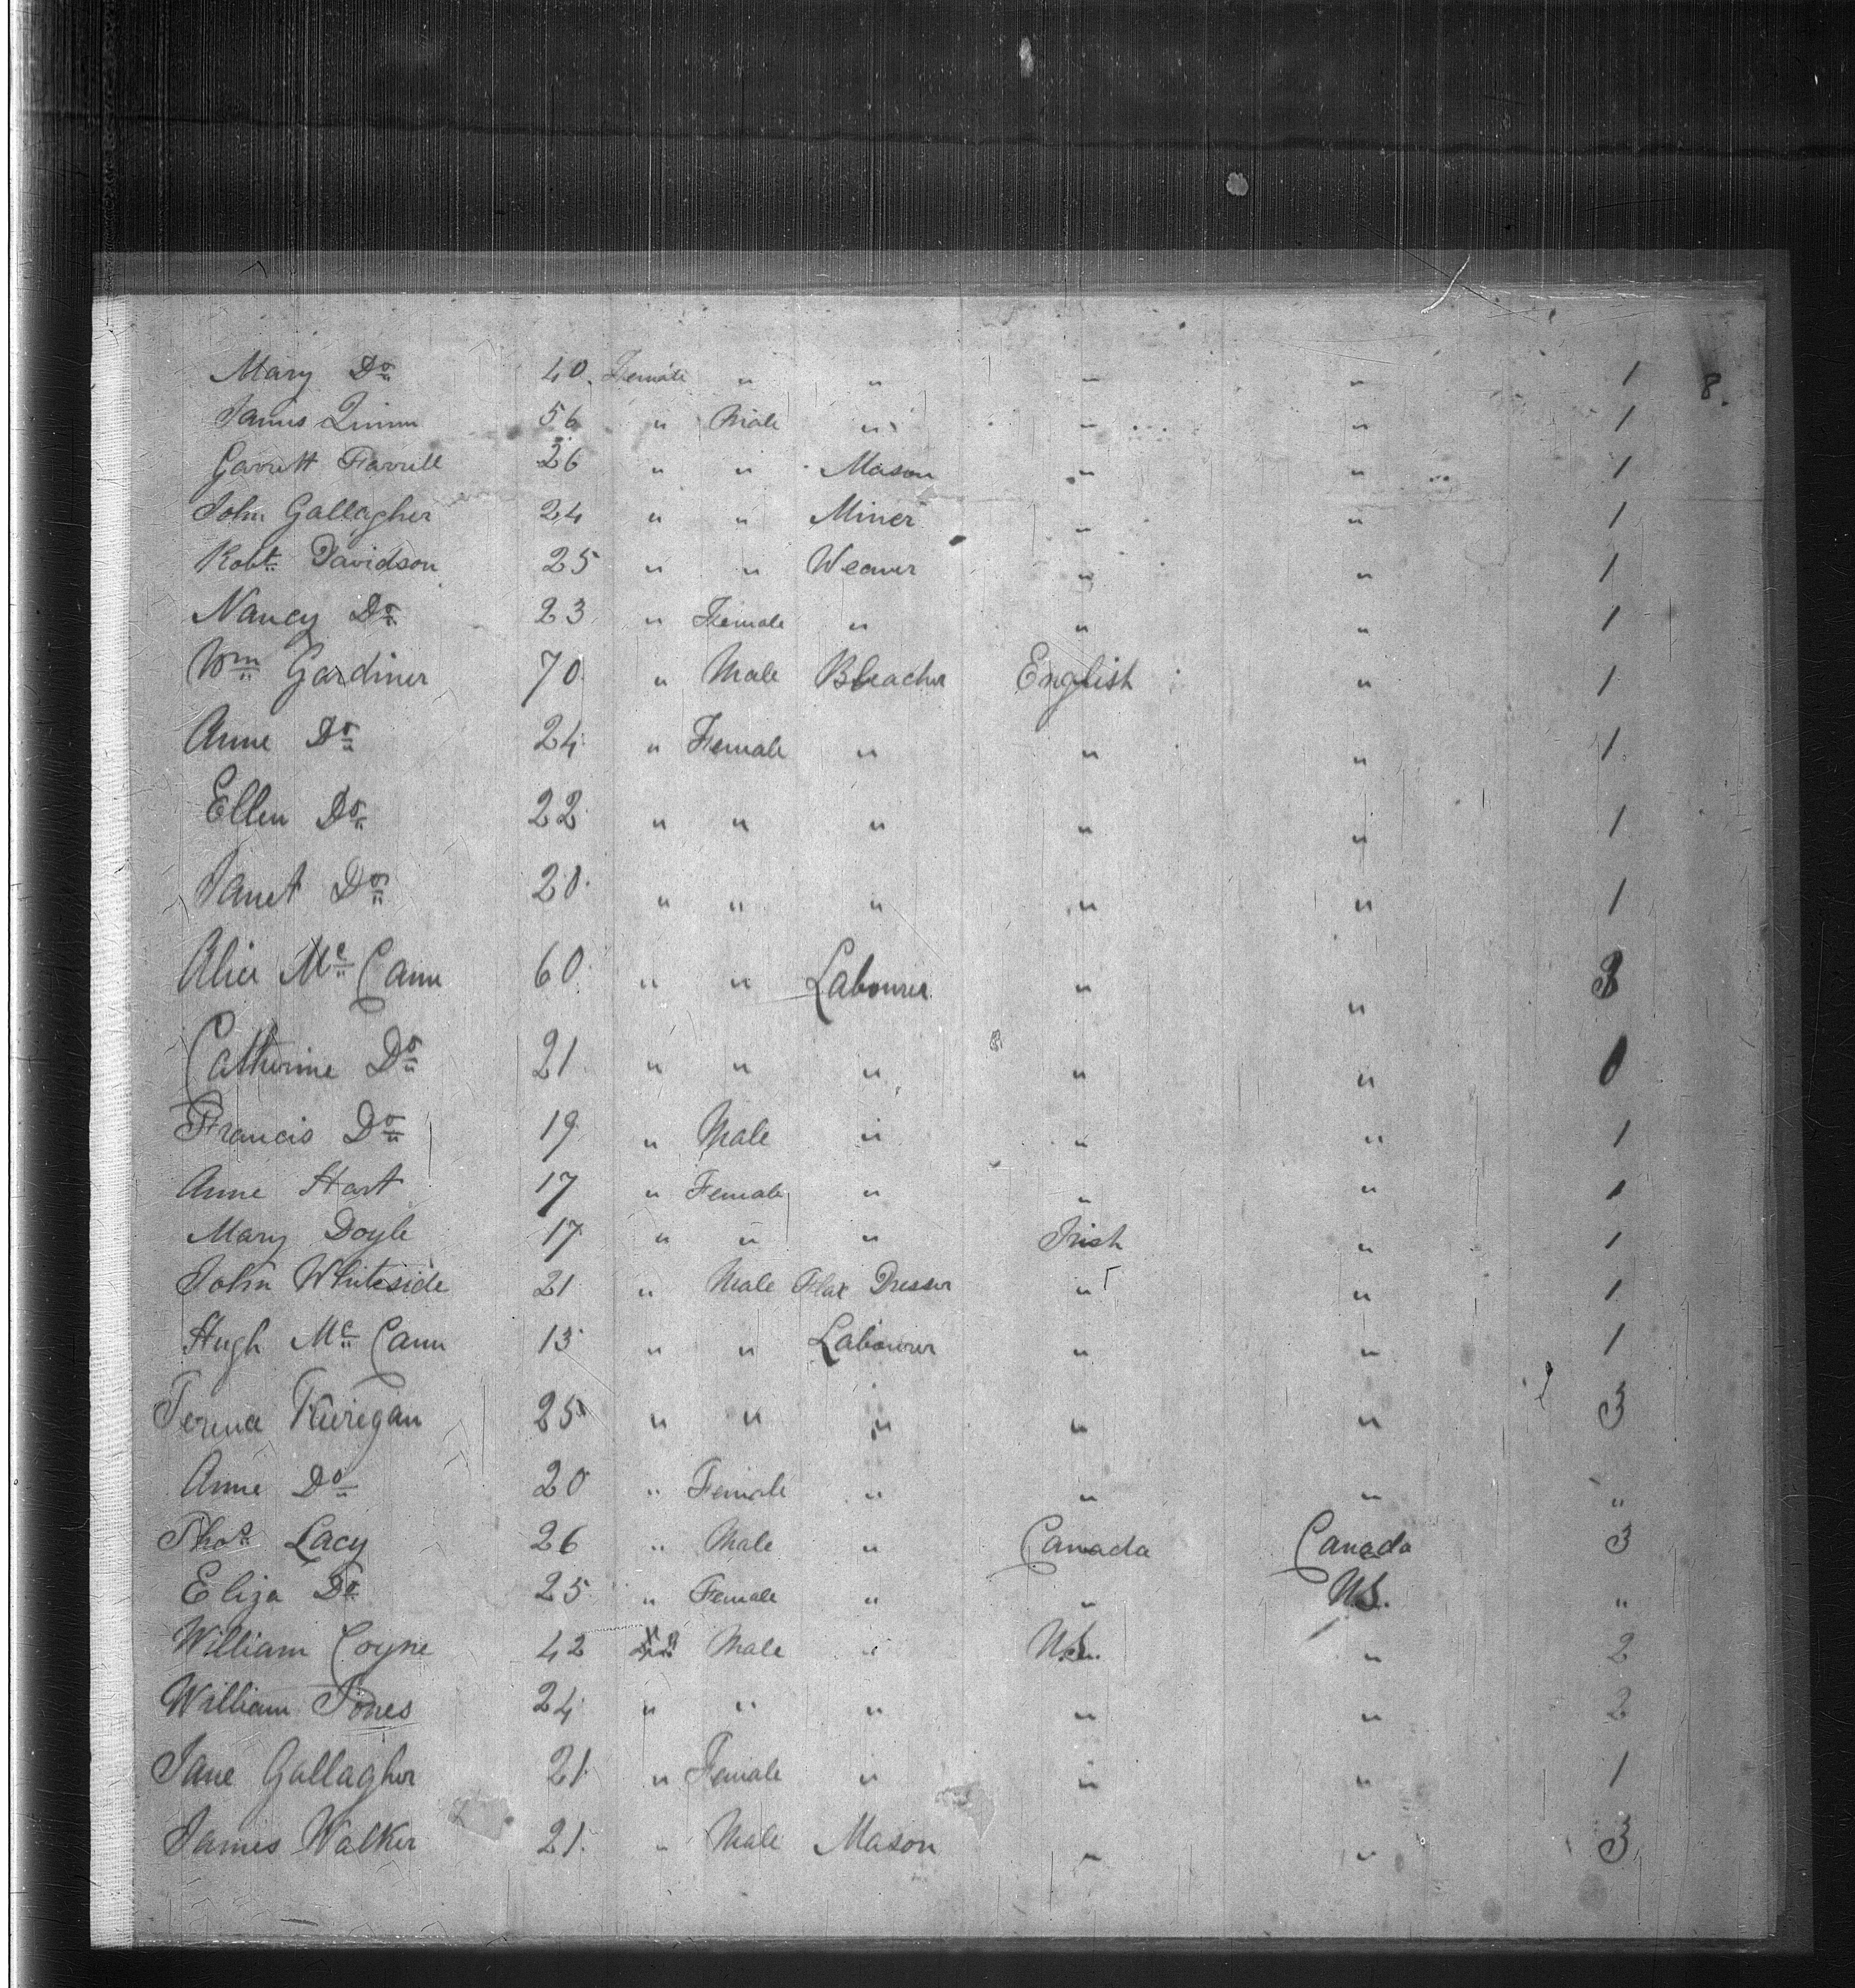 Mary Do 40. Female " " " " 1 8.
James Quinn 56 " Male " " " 1
Garrett Farrell 26 " " Mason " " 1
John Gallagher 24 " " Miner " " 1
Robt Davidson 25 " " Weaver " " 1
Nancy Do 23 " Female " " " 1
Wm Gardiner 70 " Male Bleacher English " 1
Anne Do 24 " Female " " " 1
Ellen Do 22 " " " " " 1
Janet Do 20 " " " " " 1
Alice Mc Cann 60 " " Labourer " " 3
Catherine Do 21 " " " " "
Francis Do 19 " Male " " " 1
Anne Hart 17 " Female " " " 1
Mary Doyle 17 " " " Irish " 1
John Whiteside 21 " Male Flax Dresser " " 1
Hugh Mc Cann 13 " " Labourer " " 1
25 " " " " " 3
Anne Do 20 " Female " " " "
Thos Lacy 26 " Male " Canada Canada 3
Eliza Do 25 " Female " " U.S. "
William Coyne 42 Male " U.S. " 2
William Jones 24 " " " " " 2
Jane Gallagher 21 " Female " " " 1
James Walker 21 " Male Mason " " 3